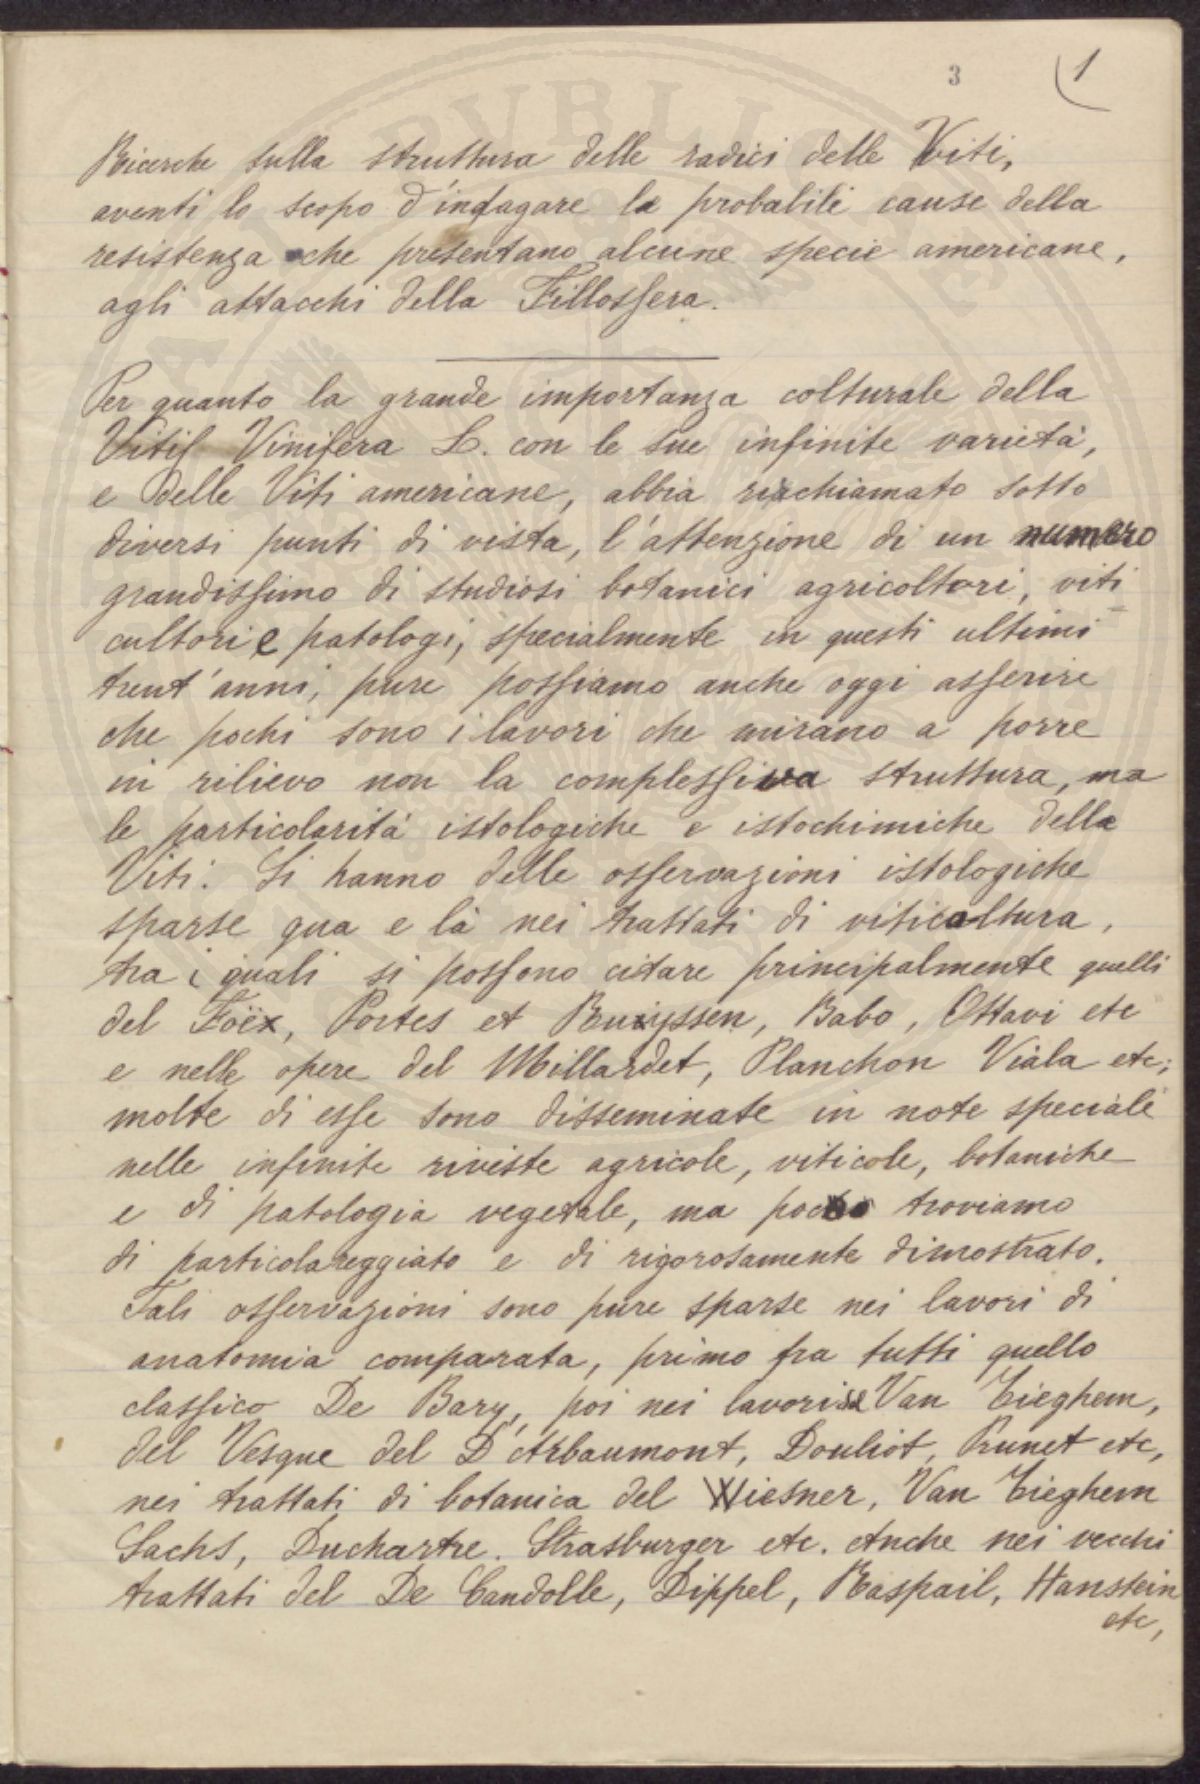 3 1
Ricerche sulla struttura delle radici delle Viti,
aventi lo scopo d'indagare le probabili cause della
resistenza che presentano alcune specie americane,
agli attacchi della Fillossera.
Per quanto la grande importanza colturale della
Vitis Vinifera L. con le sue infinite varietà,
e delle Viti americane, abbia richiamato sotto
diversi punti di vista, l'attenzione di un numero
grandissimo di studiosi botanici agricoltori, viti
cultori e patologi, specialmente in questi ultimi
trent'anni, pure possiamo anche oggi asserire
che pochi sono i lavori che mirano a porre
in rilievo non la complessiva struttura, ma
le particolarità istologiche e istochimiche delle
Viti. Si hanno delle osservazioni istologiche
sparse qua e là nei trattati di viticoltura,
tra i quali si possono citare principalmente quelli
del Föex, Portes et Ruyssen, Babo, Ottavi etc
e nelle opere del Millardet, Planchon Viala etc;
molte di esse sono disseminate in note speciali
nelle infinite riviste agricole, viticole, botaniche
e di patologia vegetale, ma poco troviamo
di particolareggiato e di rigorosamente dimostrato.
Tali osservazioni sono pure sparse nei lavori di
anatomia comparata, primo fra tutti quello
classico De Bary, poi nei lavori Van Tieghem,
del Vesque del D'Arbaumont, Douliot, Prunet etc,
nei trattati di botanica del Wiesner, Van Tieghem
Sachs, Duchartre. Strasburger etc. Anche nei vecchi
trattati del De Candolle, Dippel, Raspail, Hanstein
etc,